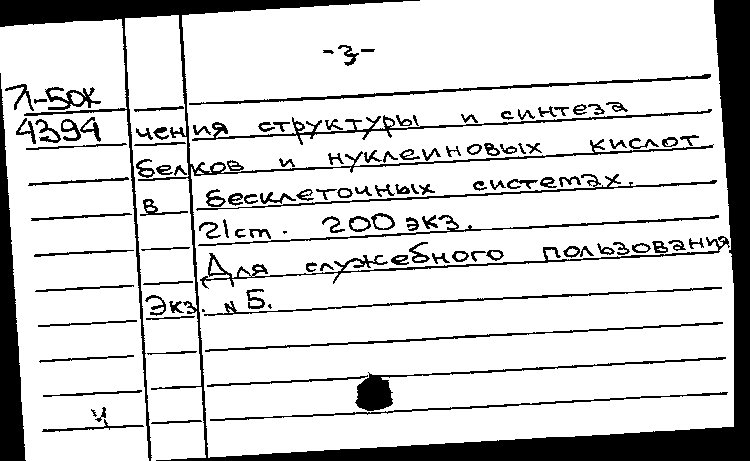 -3-
Л-50К
4394 чения структуры и синтеза
белков и нуклеиновых кислот
в бесклеточных системах.
21 ст. 200 экз.
Для служебного пользования
Экз. № 5.
ч